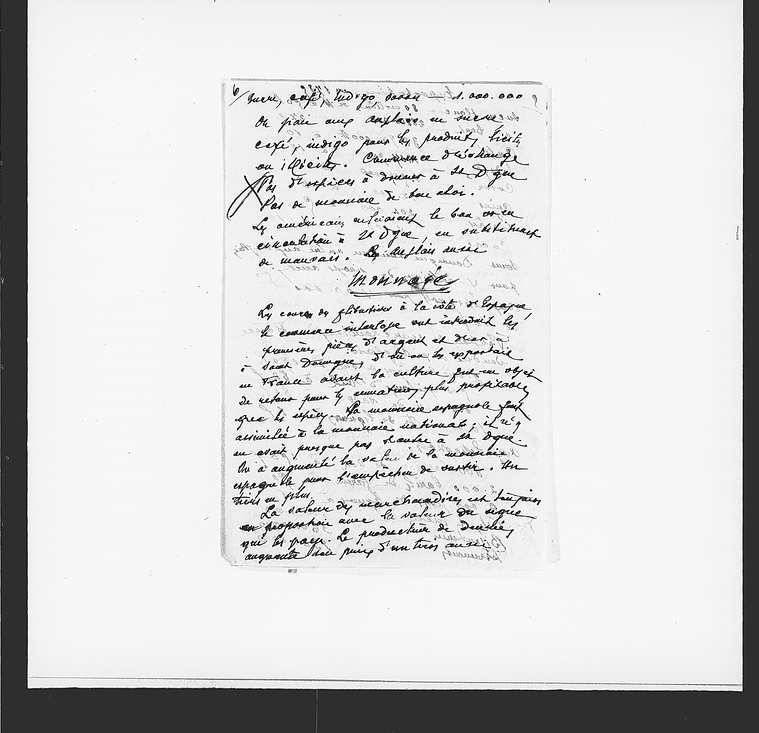 6/ sucre, café, indigo, — 1.000.000
On paie aux anglais en sucre
café, indigo pour les produits, licites
ou illicites. Commerce d'échange
Pas d'espèces à donner à St Dgue
Pas de monnaie de bon aloi.
Les américains enlevaient le bon or en
circulation à St Dgue, en substituant
de mauvais. Les Anglais aussi
Monnaie
Les courses des flibustiers à la côte d'Espagne,
le commerce interlope ont introduit les
premières pièces d'argent et d'or à
Saint Domingue, d'où on les exportait
en France avant la culture fut un objet
de retour pour les armateurs plus profitable
que les espèces. La monnaie espagnole fut
assimilée à la monnaie nationale; il n'y
en avait presque pas d'autre à St Dgue.
On a augmenté la valeur de la monnaie
espagnole pour l'empêcher de sortir. Un
tiers en plus.
La valeur des marchandises est toujours
en proportion avec la valeur du signe
qui les paye. Le producteur de denrées
augmenta son prix d'un tiers aussi